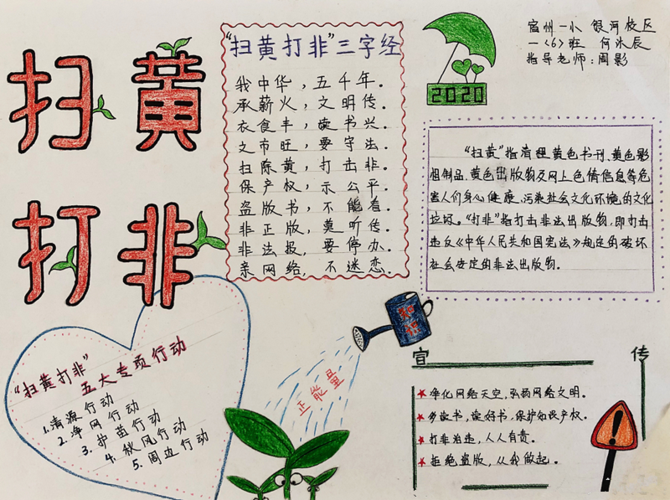 扫黄
打非
“扫黄打非”三字经
我中华，五千年.
承薪火，文明传.
衣食丰，读书兴.
文市旺，要守法.
扫除黄，打击非.
保产权，示公平.
盗版书，不能看.
非正版，莫听传.
非法报，要停办.
亲网络，不迷恋.
2020
宿州一小 银河校区
一<6>班 何沐辰
指导老师:周影
“扫黄”指清理黄色书刊、黄色影
相制品、黄色出版物及网上色情信息等危
害人们身心健康、污染社会文化环境的文化
垃圾。“打非”指打击非法出版物，即打击
违反《中华人民共和国宪法》规定的破坏
社会安定的非法出版物.
“扫黄打非”
五大专项行动
1.清源行动
2.净网行动
3.护苗行动
4.秋风行动
5.固边行动
知识
正能量
宣传
净化网络天空，弘扬网络文明.
多读书，读好书，保护知识产权.
打非治违，人人有责.
拒绝盗版，从我做起.
!